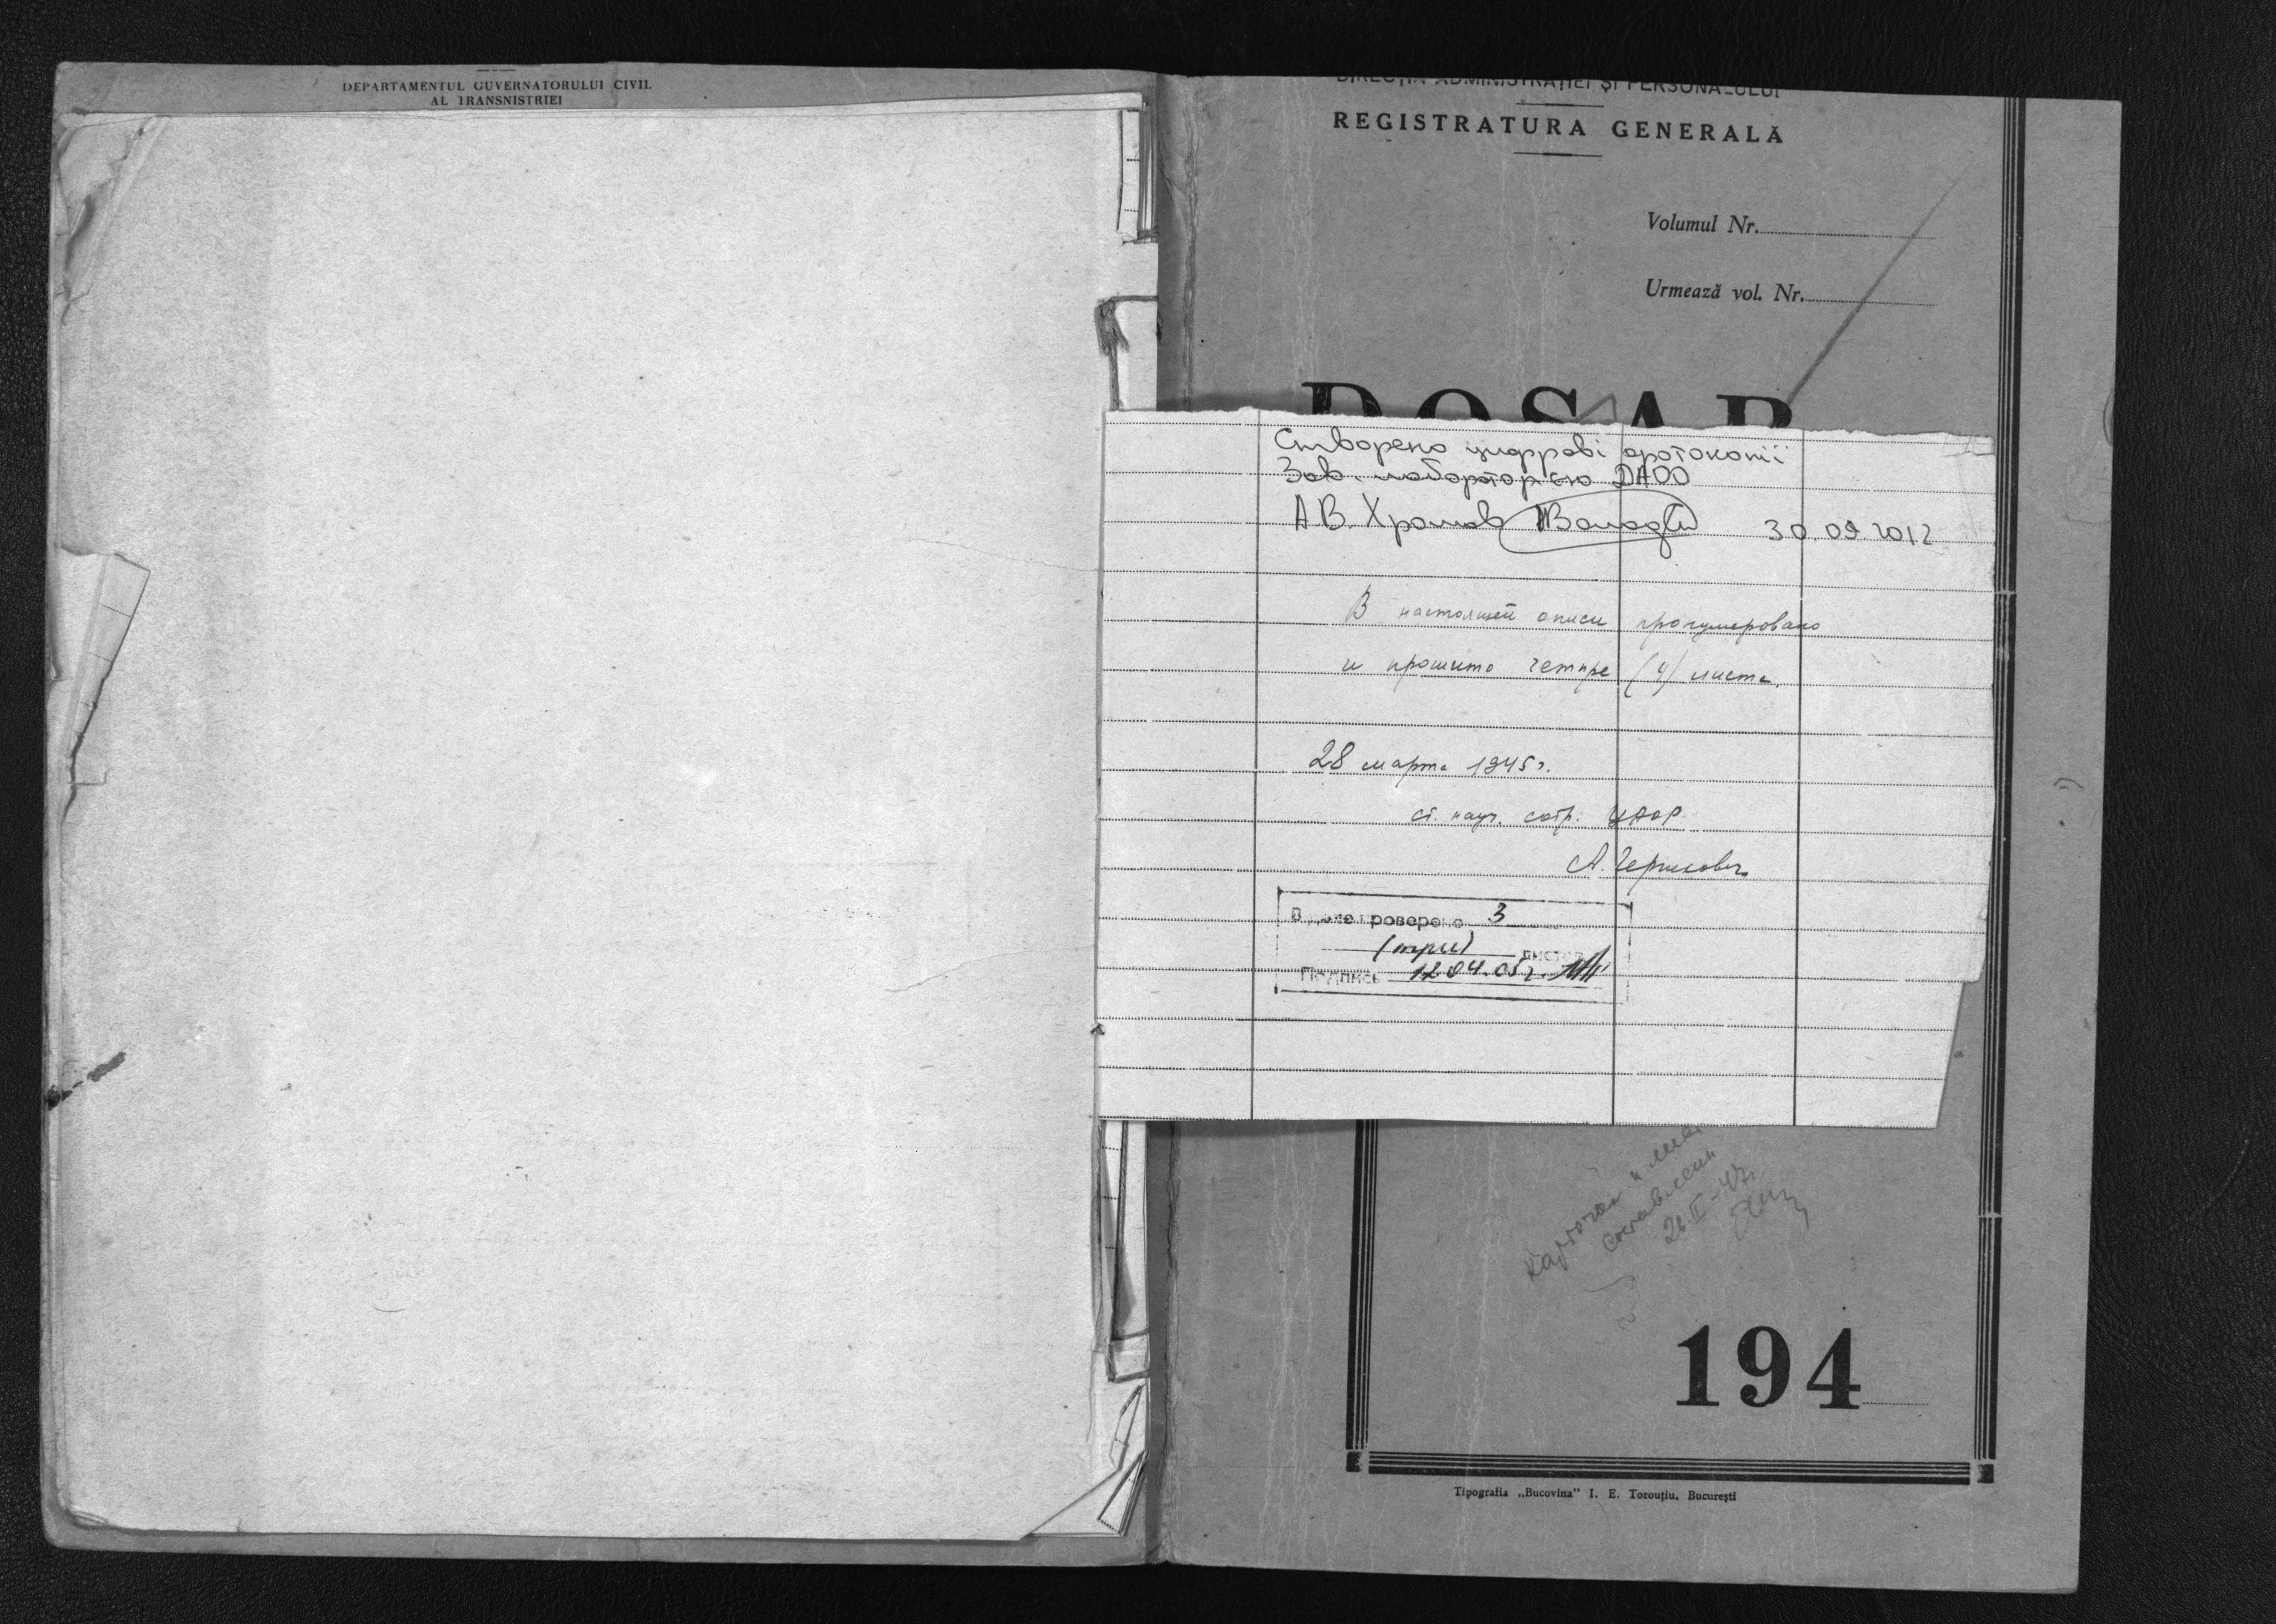 DEPARTAMENTUL GUVERNATORULUI CIVIL
AL TRANSNISTRIEI
DIRECȚIA ADMINISTRAȚIEI ȘI PERSONALULUI
REGISTRATURA GENERALĂ
Volumul Nr.
Urmează vol. Nr.
DOSAR
Створено цифрові фотокопії
Зав. лабораторією ДАОО
А В. Хромов 30.09.2012
В настоящей описи пронумеровано
и прошито четыре (4) листа.
28 марта 1945 г.
ст. науч. сотр. ЦАОР
А.
В деле проверено 3
(три) листов
Подпись 12.04.05г.
Карточки и
составлены
26.II-47г.
194
Tipografia „Bucovina" I. E. Torouțiu, București